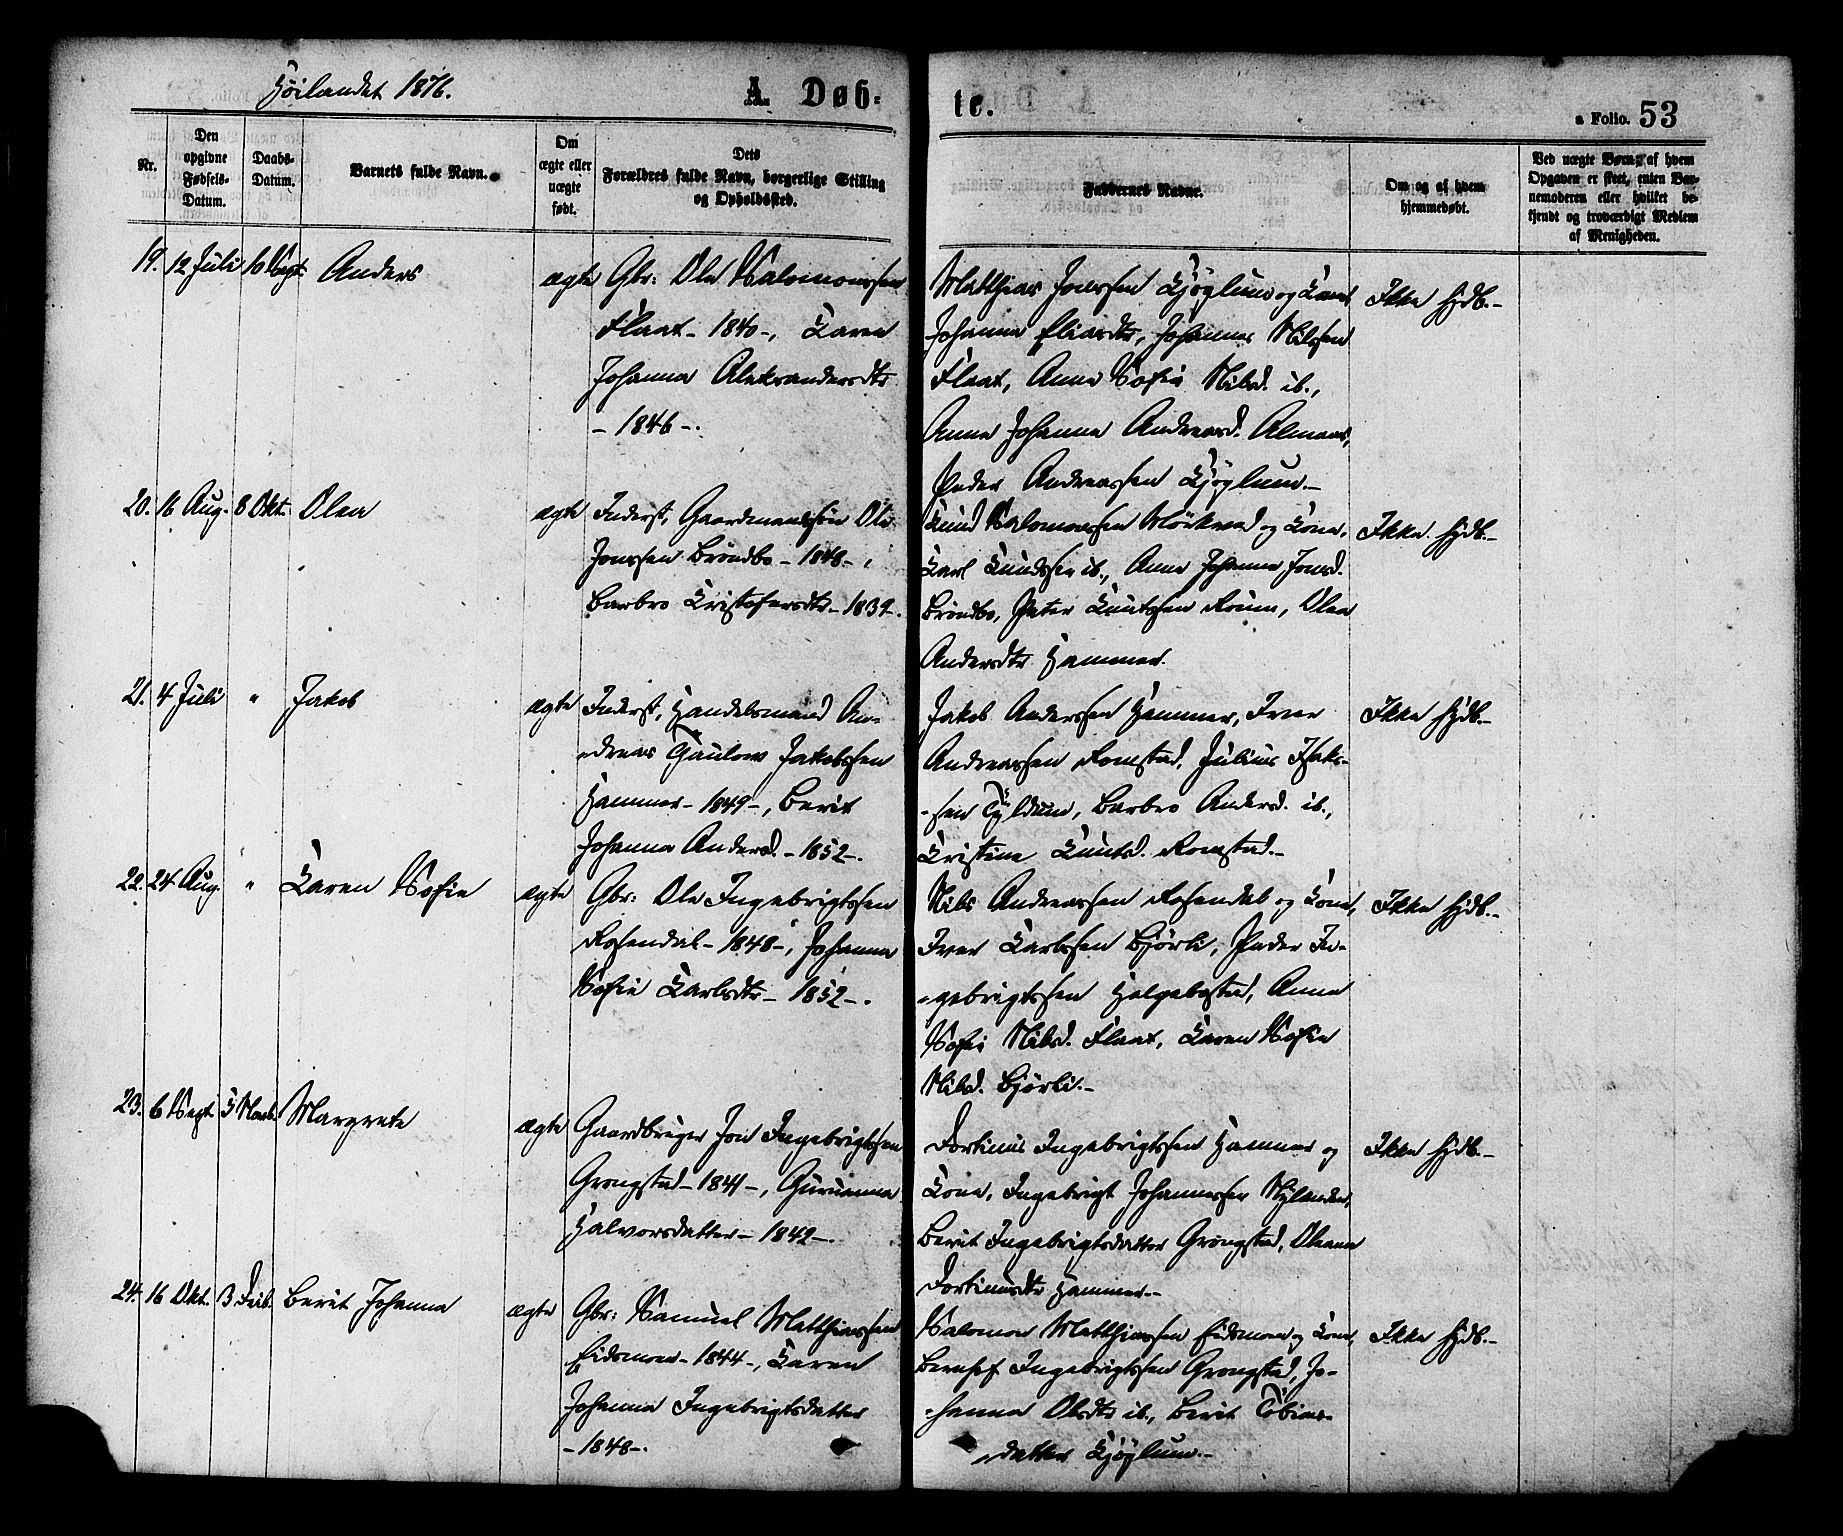 Höilandet 1876.
A. Døb-
te.
a Folio. 53
Nr.
Den opgivne Fødsels-Datum.
Daabs-Datum.
Barnets fulde Navn.
Om ægte eller uægte født.
Dets Forældres fulde Navn, borgerlige Stilling og Opholdssted.
Faddernes Navne.
Om og af hvem hjemmedøbt.
Ved uægte Børn, af hvem Opgaven er skeet, enten Barnemoderen eller hvilket bekjendt og troværdigt Medlem af Menigheden.
19. 12 Juli 10 Sept. Anders ægte Gbr: Ole Salomonssen
Flaat - 1840 -, Karen
Johanna Aleksandersdtr
- 1846 -.
Matthias Jonssen Kjöglum og Kone,
Johanna Eliasdtr, Johannes Nilssen
Flaat, Anne Sofie Nilsd. ib.,
Anne Johanna Andreasd. Almaas,
Peder Andreassen Kjöglum.-
Ikke hjdb.-
20. 16 Aug. 8 Okt. Olea ægte Inderst, Gaardmandssön Ole
Jonssen Bröndbo - 1848 -,
Barbro Kristofersdtr - 1832 -.
Knud Salomonssen Mörkved og Kone,
Karl Knudssen ib., Anne Johanna Jonsd.
Bröndbo, Peter Knutssen Roum, Olea
Andersdtr Hammer.
Ikke hjdb.-
21. 4 Juli " Jakob ægte Inderst, Handelsmand An-
dreas Gaulow Jakobssen
Hammer - 1849 -, Berit
Johanna Andersd. - 1852 -.
Jakob Anderssen Hammer, Iver
Andreassen Romstad, Julius Isaks-
-sen Tyldum, Barbro Andersd. ib.,
Kristine Knutsd. Romstad.-
Ikke hjdb.-
22. 24 Aug. " Karen Sofie ægte Gbr: Ole Ingebrigtssen
Rosendal - 1848 -, Johanna
Sofie Karlsdtr - 1852 -.
Nils Andreassen Rosendal og Kone,
Iver Karlssen Björli, Peder In-
-gebrigtssen Helgebostad, Anne
Sofie Nilsd. Flaat, Karen Sofie
Nilsd. Björli.-
Ikke hjdb.-
23. 6 Sept. 5 Novb. Margrete ægte Gaardbruger Jon Ingebrigtssen
Grongstad - 1841 -, Gurianna
Halvorsdatter - 1842 -.
Fortinus Ingebrigtssen Hammer og
Kone, Ingebrigt Johannessen Nylandet,
Berit Ingebrigtsdatter Grongstad, Oleana
Fortinusdtr Hammer.-
Ikke hjdb.-
24. 16 Okt. 3 Decb. Berit Johanna ægte Gbr: Samuel Matthiassen
Eidsmoen - 1844 -, Karen
Johanna Ingebrigtsdatter
- 1848 -.
Salomon Matthiassen Eidsmoen og Kone,
Bernhof Ingebrigtssen Grongstad, Jo-
-hanna Olsdtr ib., Berit Tobias-
datter Kjöglum.-
Ikke hjdb.-